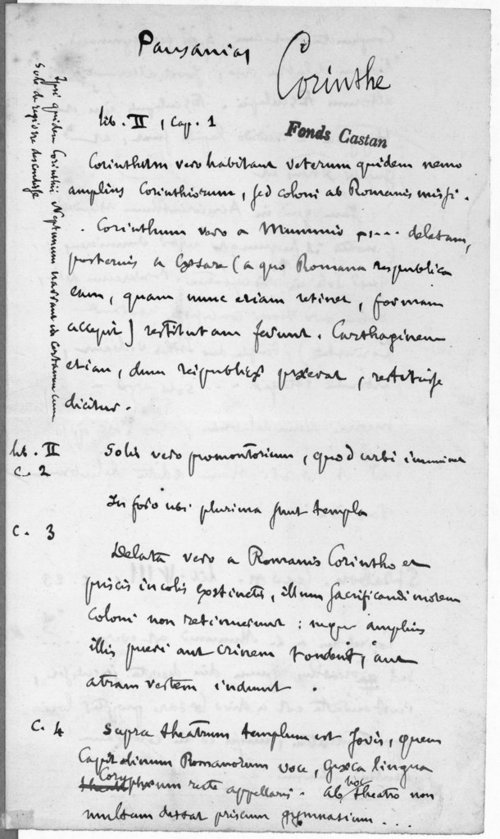 Pausanias
Corinthe
lib. II, Cap. 1
Fonds Castan
Ipsi quidem Corinthii Neptunum narrant de certamen cum
Sole de regione
Corinthum vero habitant veterum quidem nemo
amplius Corinthiorum, sed coloni ab Romanis missi.
. Corinthum vero a Mummio .... deletam,
posterius a Cæsare (a quo Romana respublica
eam, quam nunc etiam retinet, formam
accepit) restitutam ferunt. Carthaginem
etiam, dum reipublicæ præerat, restituisse
dicitur.
lib. II
C. 2
Solis vero promontorium, quod urbi imminet
In foro ubi plurima sunt templa
C. 3
Deleta vero a Romanis Corintho et
priscis incolis exstinctis, illum sacrificandi morem
coloni non retinuerunt : neque amplius
illis pueri aut crinem tondent, aut
atram vestem induunt.
C. 4
Supra theatrum templum est Jovis, quem
Capitolinum Romanorum voce, Græca lingua
Coryphæum recte appellaris. Ab hoc theatro non
multum distat priscum gymnasium ...